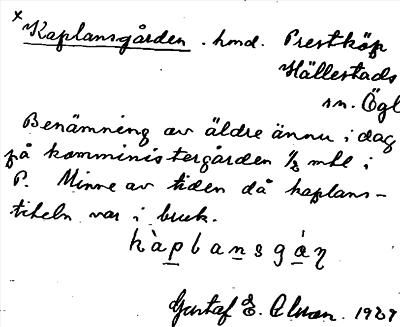 x Kaplansgården. hmd. Prestköp
Hällestads
sn. Ögl
Benämning av äldre ännu i dag
på komministergården 1/2 mtl i
P. Minne av tiden då kaplans-
titeln var i bruk.
kàplansgáŋ
Gustaf E. 1927